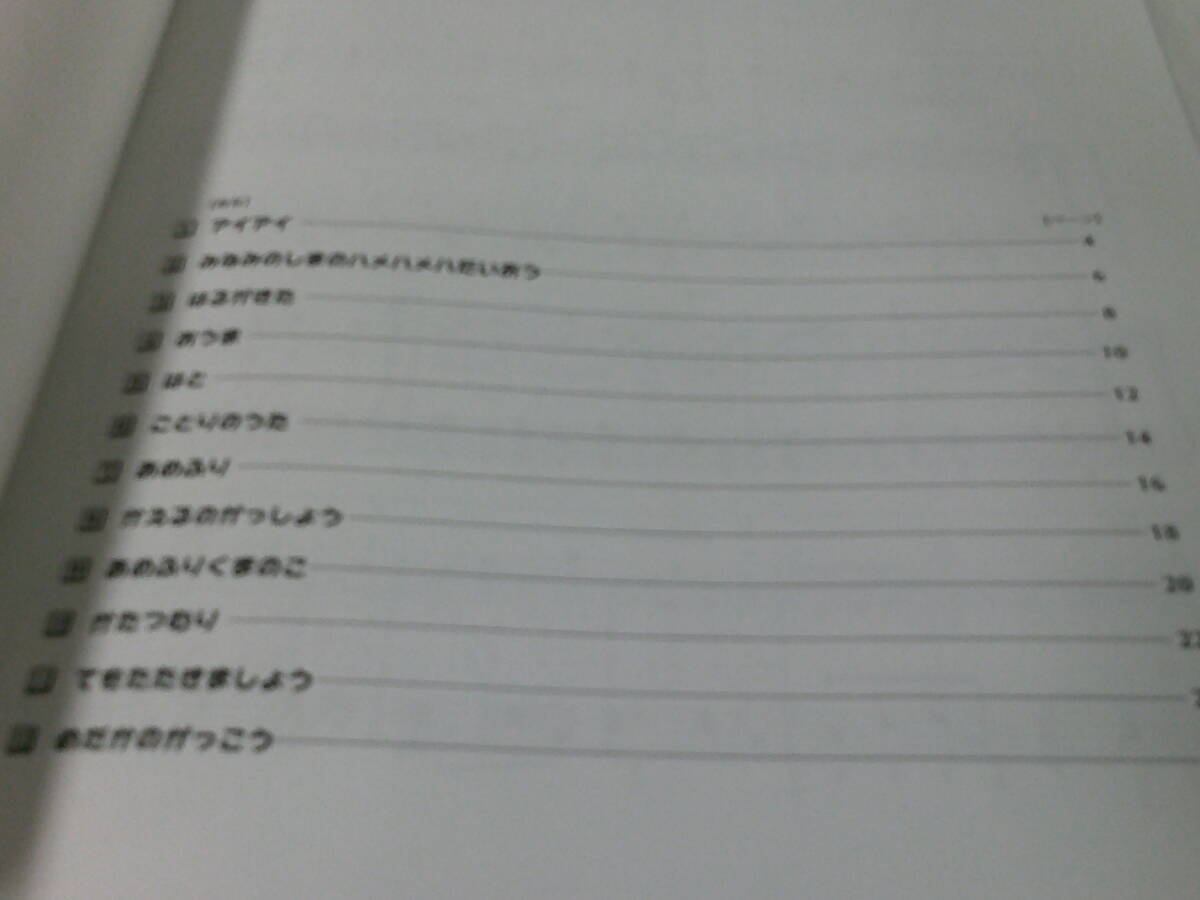 アイアイ 4
みなみのしまのハメハメハだいおう 6
はるがきた 8
おうま 10
はと 12
ことりのうた 14
あめふり 16
かえるのがっしょう 18
あめふりくまのこ 20
かたつむり 22
てをたたきましょう 2
めだかのがっこう